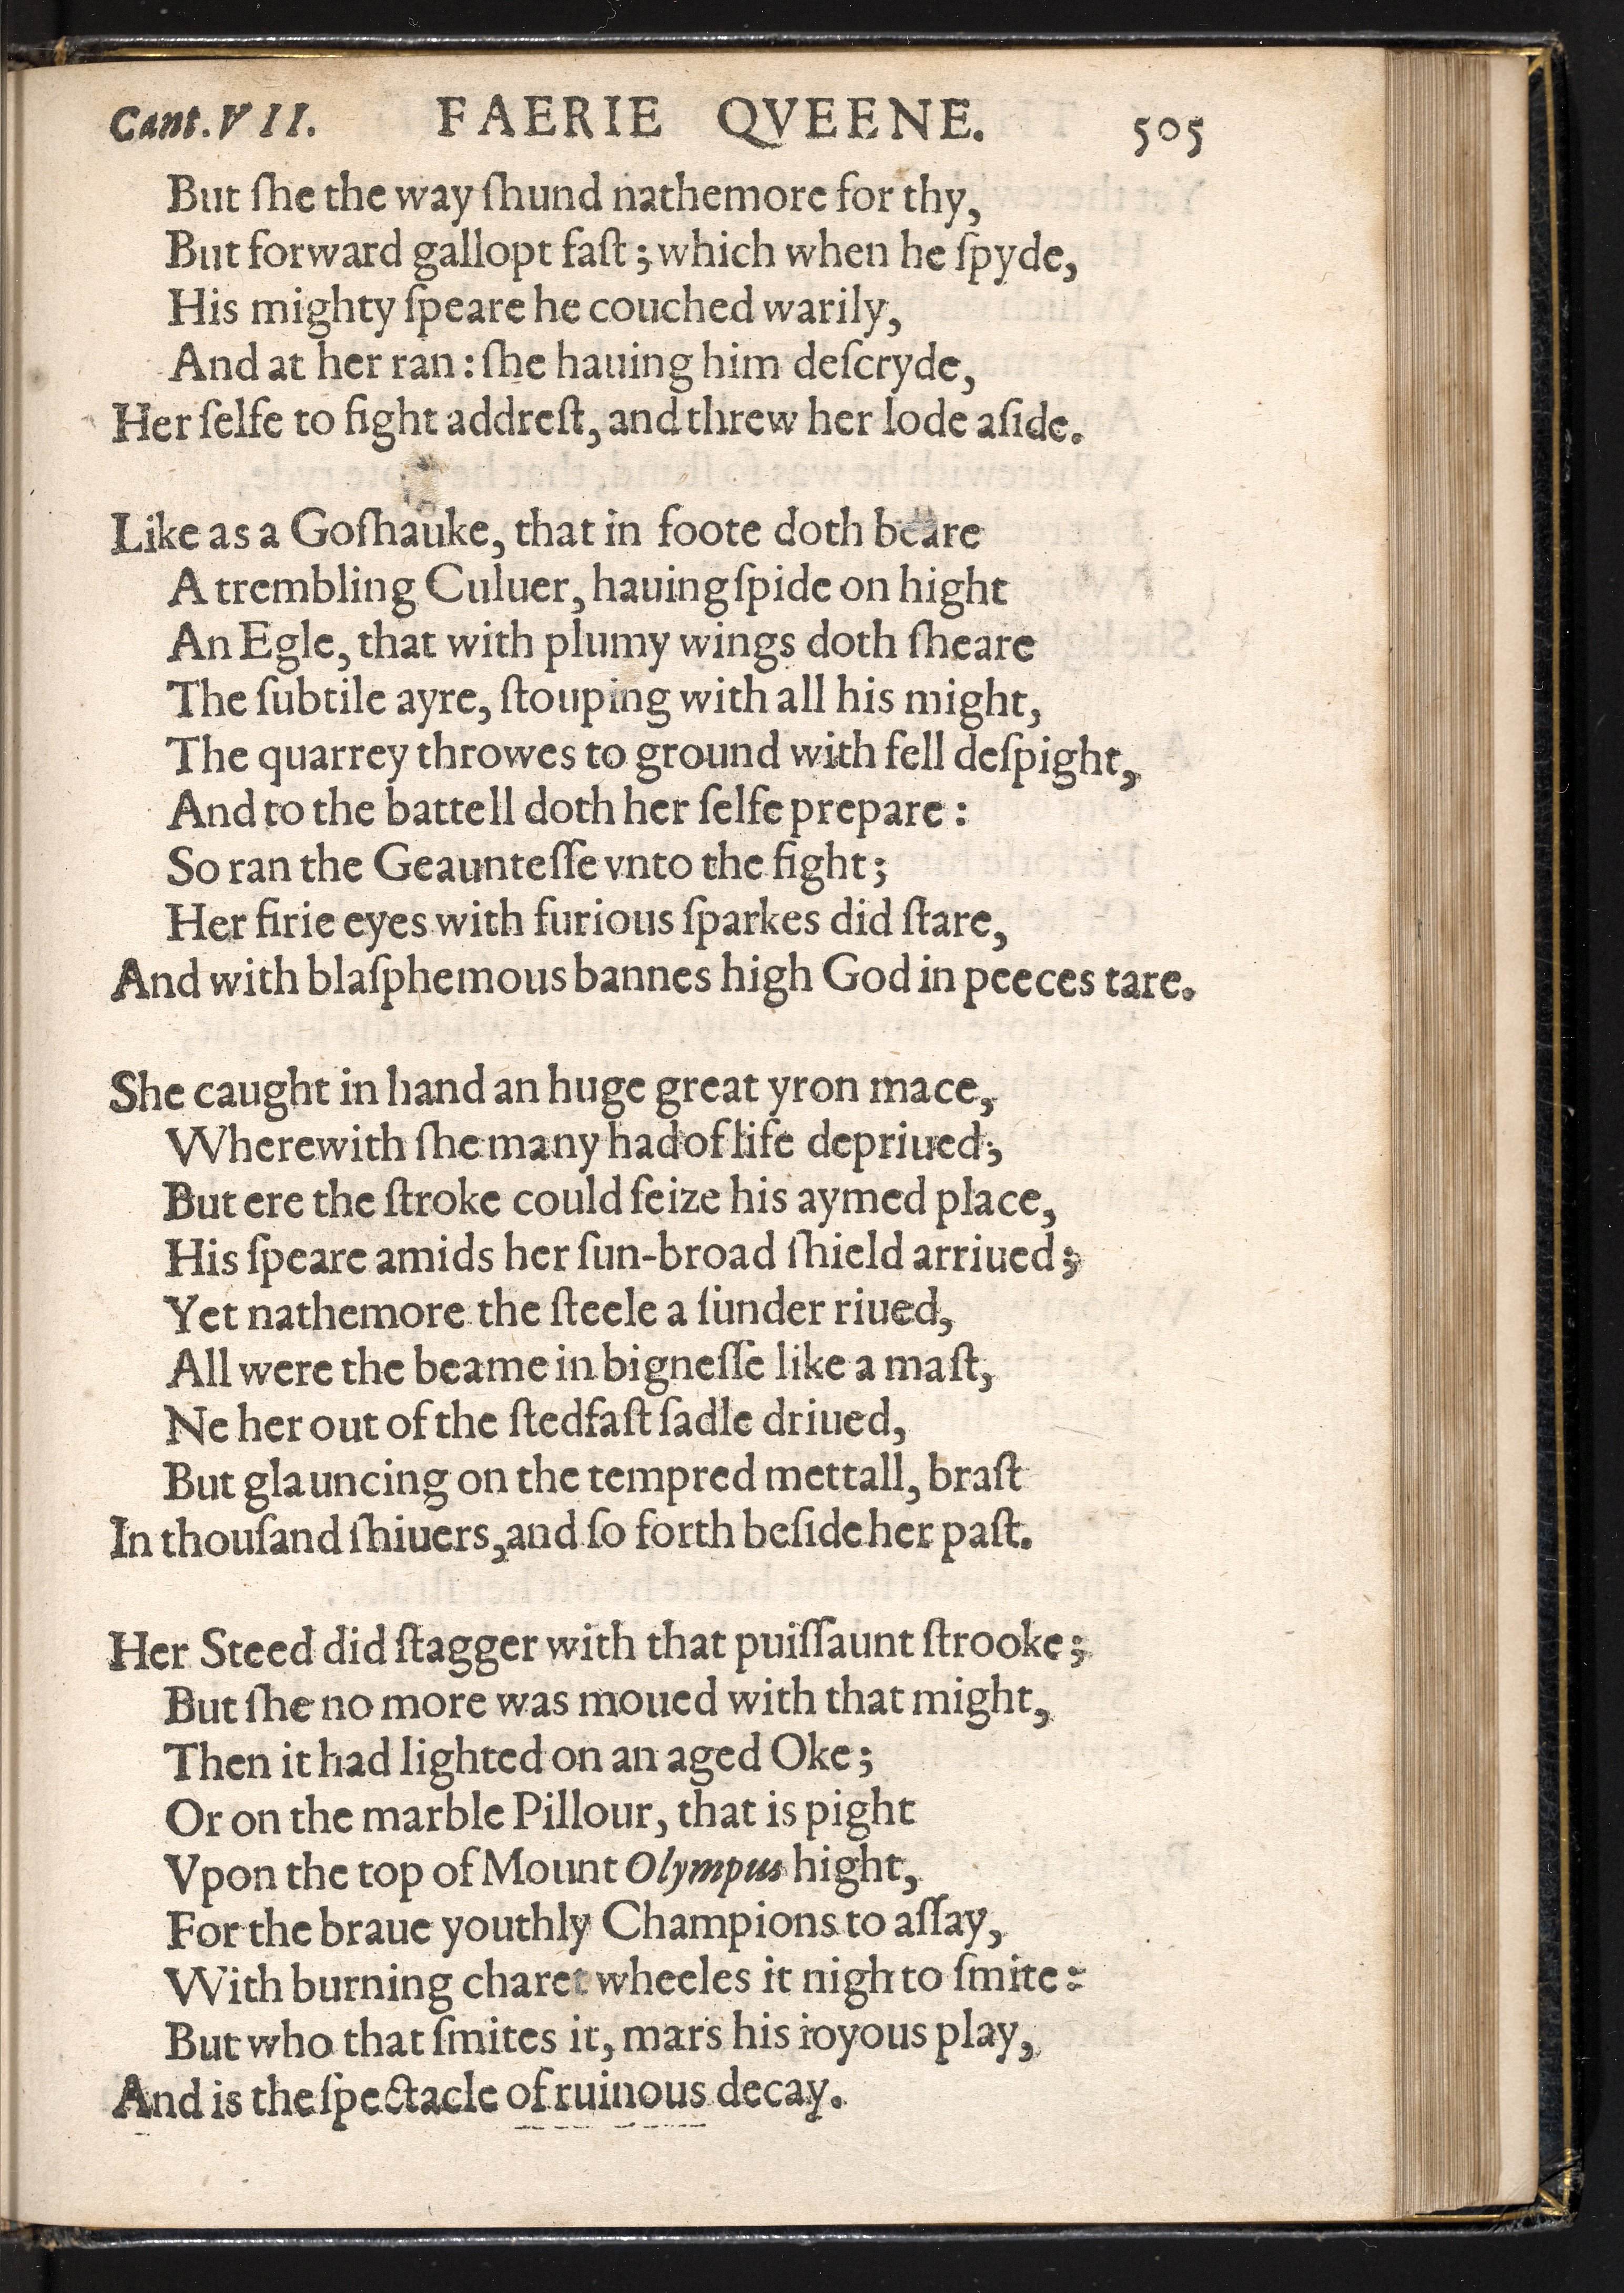 Cant. VII. FAERIE QVEENE. 505
But ſhe the way ſhund nathemore for thy,
But forward gallopt faſt; which when he ſpyde,
His mighty ſpeare he couched warily,
And at her ran: ſhe hauing him deſcryde,
Her ſelfe to fight addreſt, and threw her lode aſide.
Like as a Goſhauke, that in foote doth beare
A trembling Culuer, hauing ſpide on hight
An Egle, that with plumy wings doth ſheare
The ſubtile ayre, ſtouping with all his might,
The quarrey throwes to ground with fell deſpight,
And to the battell doth her ſelfe prepare:
So ran the Geaunteſſe vnto the fight;
Her firie eyes with furious ſparkes did ſtare,
And with blaſphemous bannes high God in peeces tare.
She caught in hand an huge great yron mace,
Wherewith ſhe many had of life depriued;
But ere the ſtroke could ſeize his aymed place,
His ſpeare amids her ſun-broad ſhield arriued;
Yet nathemore the ſteele a ſunder riued,
All were the beame in bigneſſe like a maſt,
Ne her out of the ſtedfaſt ſadle driued,
But glauncing on the tempred mettall, braſt
In thouſand ſhiuers, and ſo forth beſide her paſt.
Her Steed did ſtagger with that puiſſaunt ſtrooke;
But ſhe no more was moued with that might,
Then it had lighted on an aged Oke;
Or on the marble Pillour, that is pight
Vpon the top of Mount Olympus hight,
For the braue youthly Champions to aſſay,
With burning charet wheeles it nigh to ſmite:
But who that ſmites it, mars his ioyous play,
And is the ſpectacle of ruinous decay.